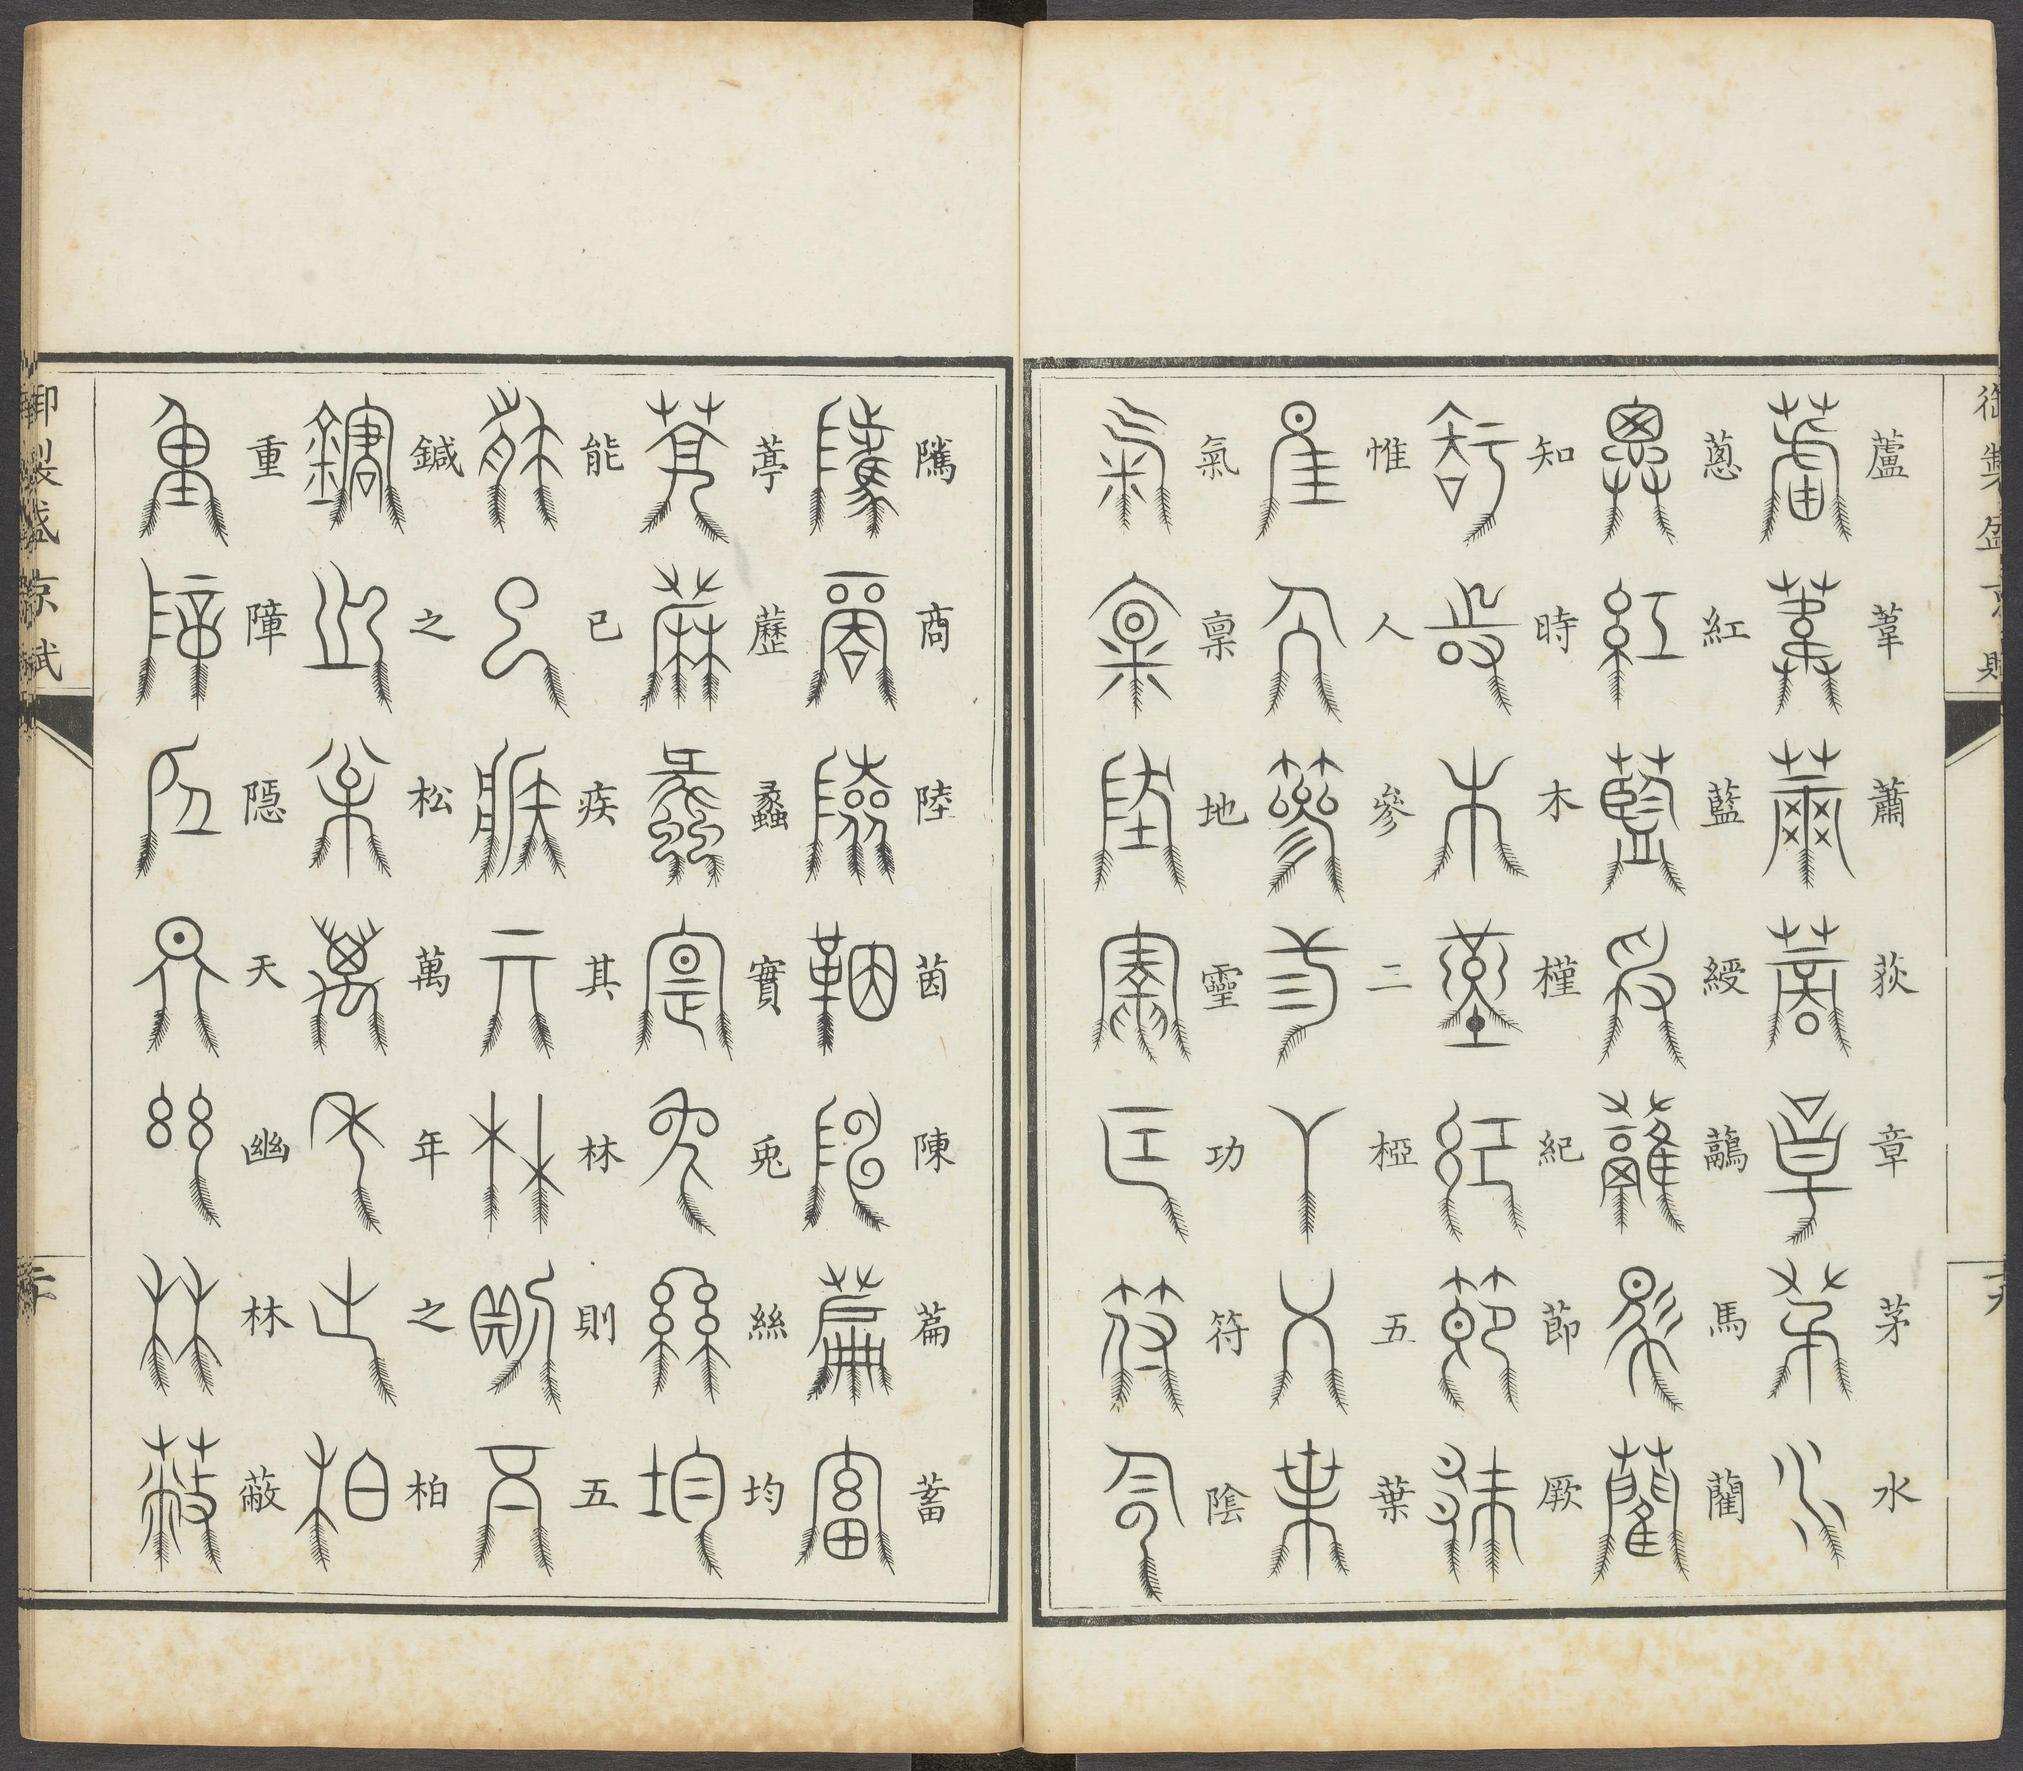 御製盛京賦
蘆葦蕭荻章茅水
蔥紅藍綬鷊馬藺
知時木槿紀節厥
惟人參二椏五葉
氣稟地靈功符陰
隲商陸茵陳萹蓄
葶藶蠡實兎絲均
能已疾其林則五
鍼之松萬年之柏
重障隱天幽林蔽
御製盛京賦